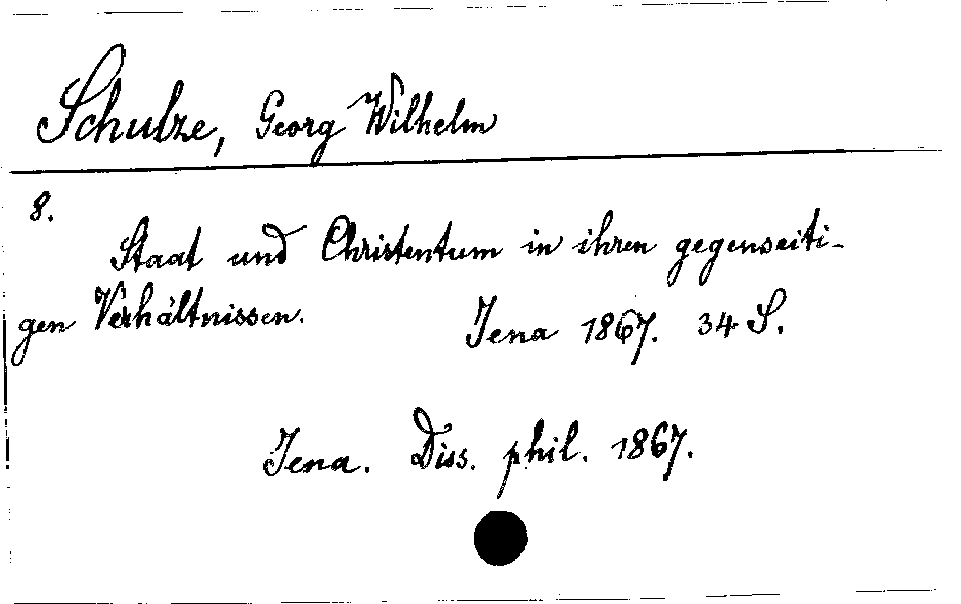 Schulze, Georg Wilhelm
8.
Staat und Christentum in ihren gegenseiti-
gen Verhältnissen.
Jena 1867. 34 S.
Jena. Diss. phil. 1867.